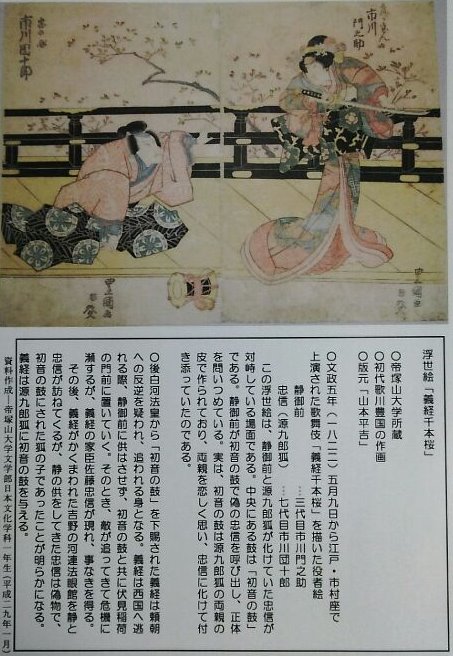 市川門之助
市川団十郎
豊国画
豊国画
浮世絵「義経千本桜」
○帝塚山大学所蔵
○初代歌川豊国の作画
○版元「山本平吉」
○文政五年（一八二二）五月九日から江戸・市村座で
上演された歌舞伎「義経千本桜」を描いた役者絵
静御前 …三代目市川門之助
忠信（源九郎狐） …七代目市川団十郎
この浮世絵は、静御前と源九郎狐が化けていた忠信が
対峙している場面である。中央にある鼓は「初音の鼓」
である。静御前が初音の鼓で偽の忠信を呼び出し、正体
を問いつめている。実は、初音の鼓は源九郎狐の両親の
皮で作られており、両親を恋しく思い、忠信に化けて付
き添っていたのである。
○後白河法皇から「初音の鼓」を下賜された義経は頼朝
への反逆を疑われ、追われる身となる。義経は西国へ逃
れる際、静御前に供はさせず、初音の鼓と共に伏見稲荷
の門前に置いていく。そのとき、敵が追ってきて危機に
瀕するが、義経の家臣佐藤忠信が現れ、事なきを得る。
その後、義経がかくまわれた吉野の河連法眼館を静と
忠信が訪ねてくるが、静の供をしてきた忠信は偽物で、
初音の鼓にされた狐の子であったことが明らかになる。
義経は源九郎狐に初音の鼓を与える。
資料作成―帝塚山大学文学部日本文化学科一年生（平成二九年一月）